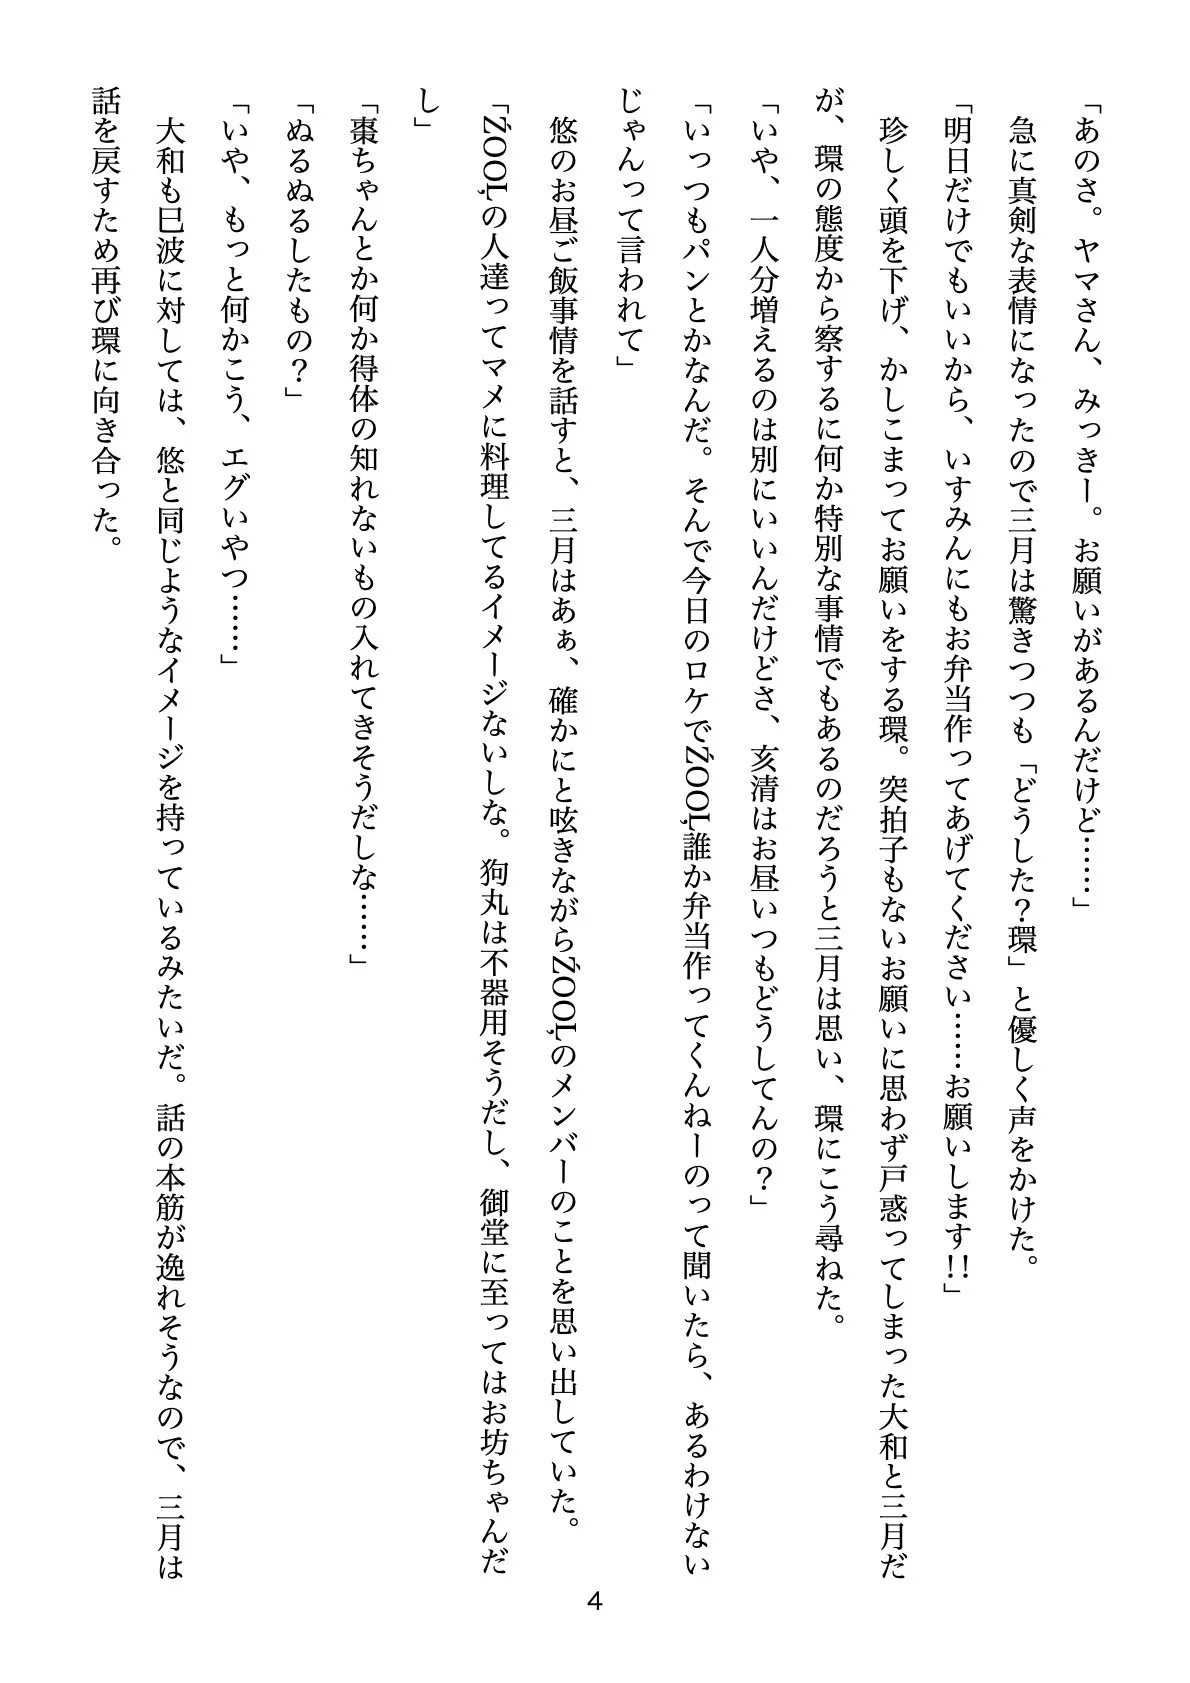 「あのさ。ヤマさん、みっきー。お願いがあるんだけど……」
急に真剣な表情になったので三月は驚きつつも「どうした？環」と優しく声をかけた。
「明日だけでもいいから、いすみんにもお弁当作ってあげてください……お願いします!!」
珍しく頭を下げ、かしこまってお願いをする環。突拍子もないお願いに思わず戸惑ってしまった大和と三月だ
が、環の態度から察するに何か特別な事情でもあるのだろうと三月は思い、環にこう尋ねた。
「いや、一人分増えるのは別にいいんだけどさ、亥清はお昼いつもどうしてんの？」
「いっつもパンとかなんだ。そんで今日のロケでŹOOĻ誰か弁当作ってくんねーのって聞いたら、あるわけない
じゃんって言われて」
悠のお昼ご飯事情を話すと、三月はあぁ、確かにと呟きながらŹOOĻのメンバーのことを思い出していた。
「ŹOOĻの人達ってマメに料理してるイメージないしな。狗丸は不器用そうだし、御堂に至ってはお坊ちゃんだ
し」
「棗ちゃんとか何か得体の知れないもの入れてきそうだしな……」
「ぬるぬるしたもの？」
「いや、もっと何かこう、エグいやつ……」
大和も巳波に対しては、悠と同じようなイメージを持っているみたいだ。話の本筋が逸れそうなので、三月は
話を戻すため再び環に向き合った。
4